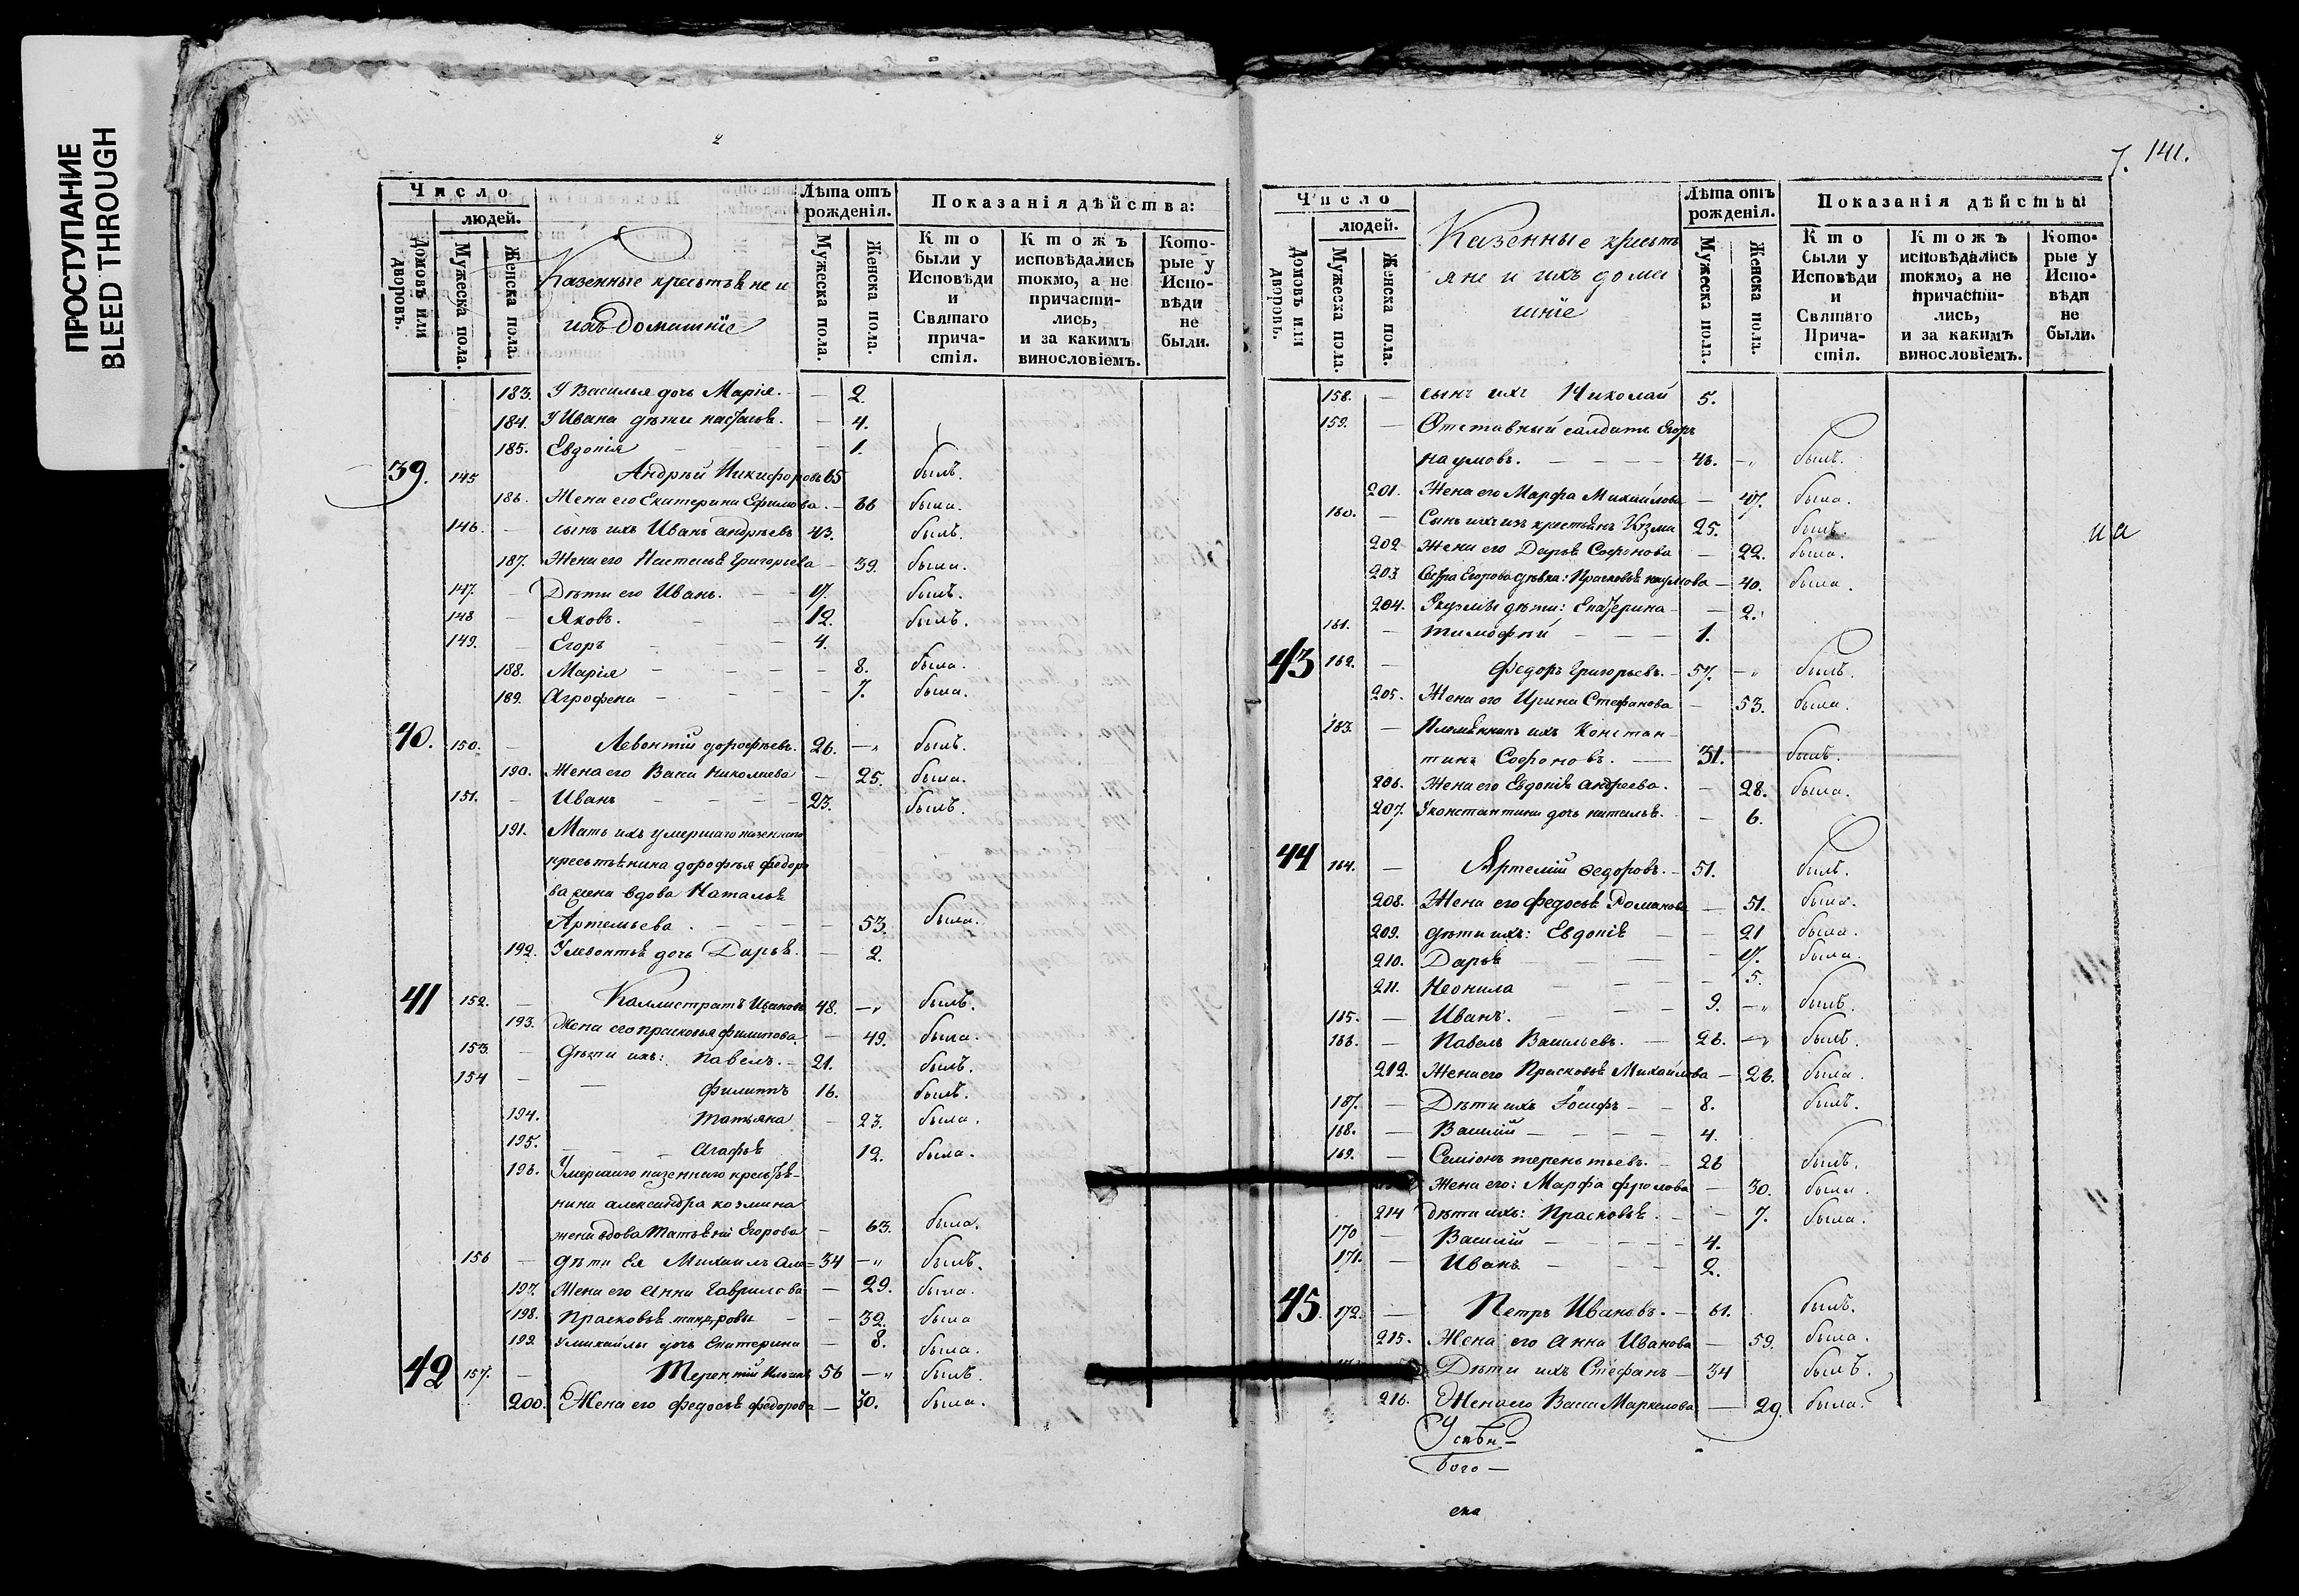 ПРОСТУПАНИЕ
BLEED THROUGH
Число
людей.
Домовъ или дворовъ.
Мужеска пола.
Женска пола.
Казенные крестьяне и
ихъ домашніе
Лѣта отъ рожденія.
Мужеска пола.
Женска пола.
Показанія дѣйства:
Кто были у Исповѣди и Святаго причастія.
Ктожъ исповѣдались токмо, а не причастились, и за какимъ винословіемъ.
Которые у Исповѣди не были.
183. У Василья дочь Марія. — 2.
184. У Ивана дѣти настасья. — 4.
185. Евдокія — 1.
39. 145 Андрѣй Никифоровъ 65 былъ.
186. Жена его Екатерина Ефимова. — 66 была.
146. — сынъ ихъ Иванъ андрѣевъ 43. былъ.
187. Жена его Настасья Григорьева — 39. была.
147. — Дѣти его Иванъ. — 17. былъ.
148 — Яковъ. — 12. былъ.
149. — Егоръ — 4.
188. Марія — 8. была.
189. Агрофена — 7. была.
40. 150. — Левонтій дорофѣевъ. 26. —„ былъ.
190. Жена его Васа Николаева — 25. была.
151. — Иванъ — 23. былъ.
191. Мать ихъ умершаго казеннаго
крестьянина дорофѣя федоро
ва жена вдова Наталья
Артемьева. — 53. была.
192. У левонтья дочь Дарья. — 2.
41 152. — Каллистратъ Ивановъ 48. —„ былъ.
193. Жена его прасковья филипова. — 49. была.
153. — Дѣти ихъ: павелъ. — 21. былъ.
154 — — филиппъ 16. былъ.
194. татьяна — 23. была.
195. — — агафья 12. была.
196. Умершаго казеннаго крестья-
нина александра козмина
жена вдова Татьяна Егорова — 63. была.
156 — дѣти Ея Михаилъ але= 34 —„ былъ.
197. Жена его Анна Гаврилова — 29. была.
198. прасковья — 32. была
199. У михайлы дочь Екатерина — 8. была.
42 157. — Терентій Ильинъ 56 —„ былъ.
200. Жена его федосья федорова — 30. была.
7. 141.
Число
людей.
Домовъ или дворовъ.
Мужеска пола.
Женска пола.
Казенные кресть
яне и ихъ дома
шніе
Лѣта отъ рожденія.
Мужеска пола.
Женска пола.
Показанія дѣйства
Кто были у Исповѣди и Святаго Причастія.
Ктожъ исповѣдались токмо, а не причастились, и за какимъ винословіемъ.
Которые у Исповѣди не были.
158. — сынъ ихъ Николай 5.
159. — Отставный салдатъ Егоръ
наумовъ. — 46. —„ былъ.
201. Жена его Марфа Михайлова — 47. была.
160. — Сынъ ихъ изъ крестьянъ Кузма 25. былъ.
202 Жена его Дарья Софонова — 22. была.
203 Сестра Егорова дѣвка: Прасковья наумова — 40. была.
204. У кузмы дѣти: Екатерина — 2.
161. — тимофѣй — 1.
43 162. — федоръ Григорьевъ. — 57. —„ былъ.
205. Жена его Ирина Стефанова — 53. была.
163. — Племянникъ ихъ Констан-
тинъ Софоновъ. — 31. былъ.
206. Жена его Евдокія андреева. — 28. была.
207. У константина дочь наталья. — 6.
44 164. — Артемій Федоровъ. — 51. былъ.
208. Жена его федосья Романова — 51. была.
209. дѣти ихъ: Евдокія — 21 была.
210. Дарья — 17. была.
211. Неонила — 5.
165. — Иванъ. — 9. —„ былъ.
166. — Павелъ Васильевъ. — 26. —„ былъ.
212. Жена его Прасковья Михайлова — 26. была.
167. — Дѣти ихъ Іосифъ — 8. былъ.
168. — Василій — 4.
169. — Семіонъ терентьевъ. — 26 былъ.
Жена его: Марфа фролова — 30. была.
214 дѣти ихъ: Прасковья. — 7. была.
170 — Василій — 4.
171. — Иванъ — 2.
45 172. — Петръ Ивановъ. — 61. былъ.
215. Жена его Анна Иванова — 59. была.
Дѣти ихъ Стефанъ — 34 былъ.
216. Жена его Васа Маркелова — 29. была.